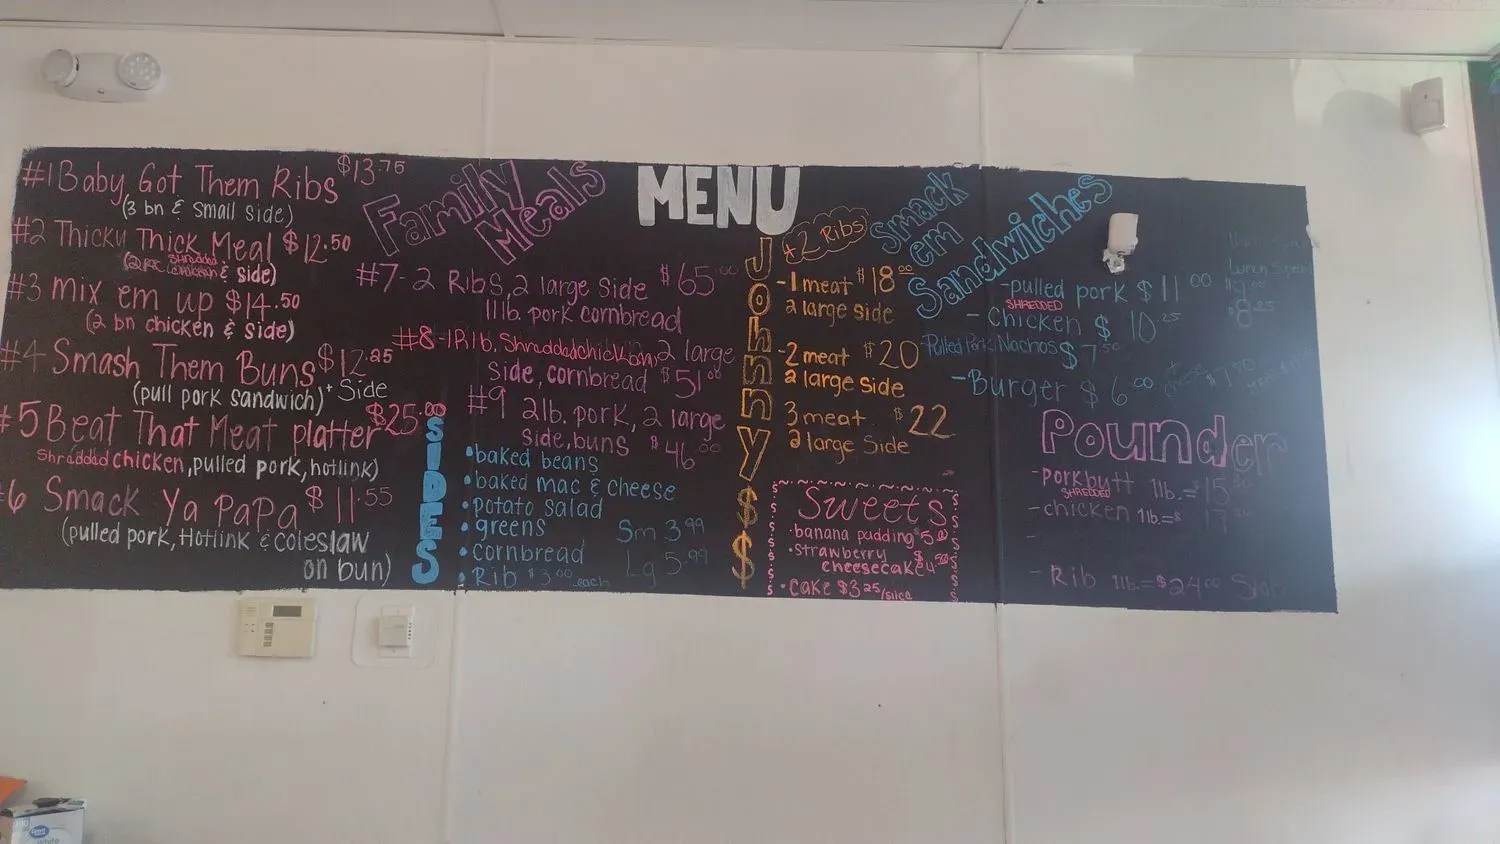 MENU
#1 Baby Got Them Ribs $13.75
(3 bn & small side)
#2 Thicky Thick Meal $12.50
shredded
chicken & side)
#3 mix em up $14.50
(2 bn chicken & side)
#4 Smash Them Buns $12.25
(pull pork sandwich) + Side
#5 Beat That Meat platter $25.00
Shradded chicken, pulled pork, hotlink)
#6 Smack Ya PaPa $11.55
(pulled pork, Hotlink & coleslaw
on bun)
Family
Meals
#7-2 Ribs, 2 large side $65.00
1 lb. pork cornbread
#8-1 Rib, Shraddedchickban, 2 large
side, cornbread $51.00
#9 2lb. pork, 2 large
side, buns $46.00
SIDES
•baked beans
•baked mac & cheese
•potato salad
•greens Sm 3.99
•cornbread Lg 5.99
•Rib $3.00 each
Johnny $$
+2 Ribs
-1 meat $18.00
2 large side
-2 meat $20
2 large side
3 meat $22
2 large side
Sweets
•banana padding $5.00
•strawberry
cheesecake $4.50
•cake $3.25/slice
Smack
em
Sandwiches
-pulled pork $11.00
SHREDDED
-chicken $10.25
Pulled Pork Nachos $7.50
-Burger $6.00
$8.25
Pounder
-porkbutt 1lb.=$15
SHREDDED
-chicken 1lb.=$
-Rib 1lb.=$24.00